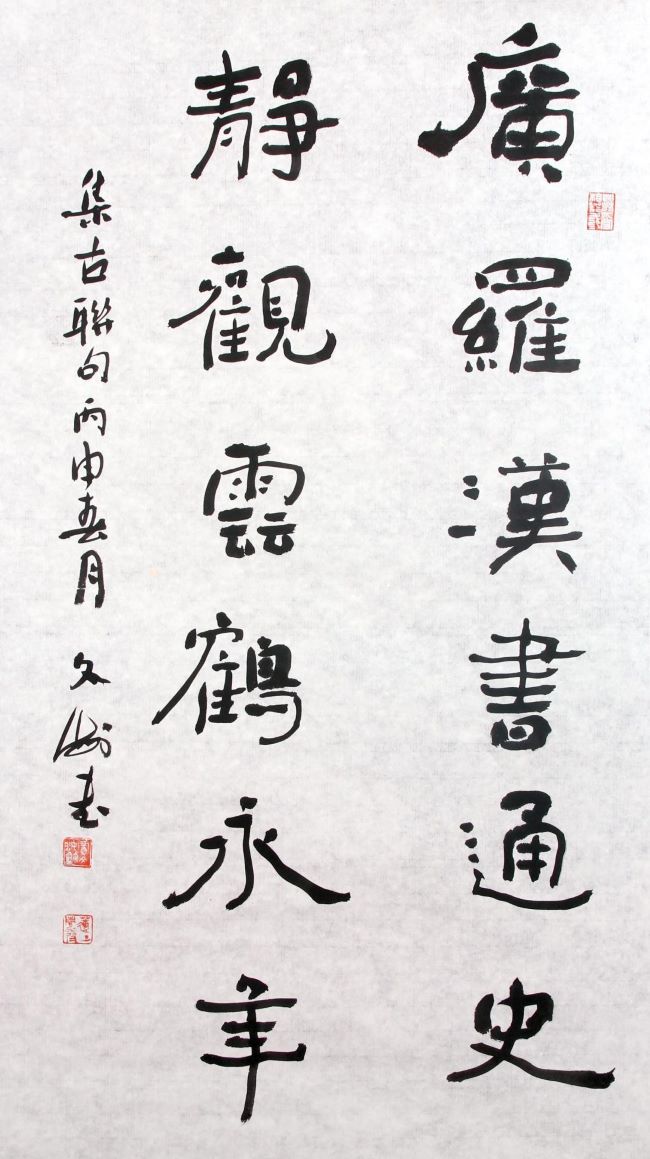 廣羅漢書通史
靜觀雲鶴永年
集古聯句丙申春月 文 書